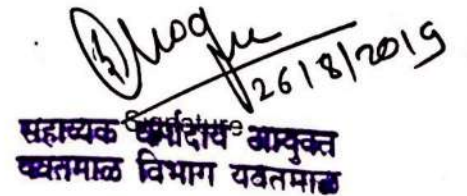 26/8/2019
Signature
सहाय्यक धर्मादाय आयुक्त
यवतमाळ विभाग यवतमाळ